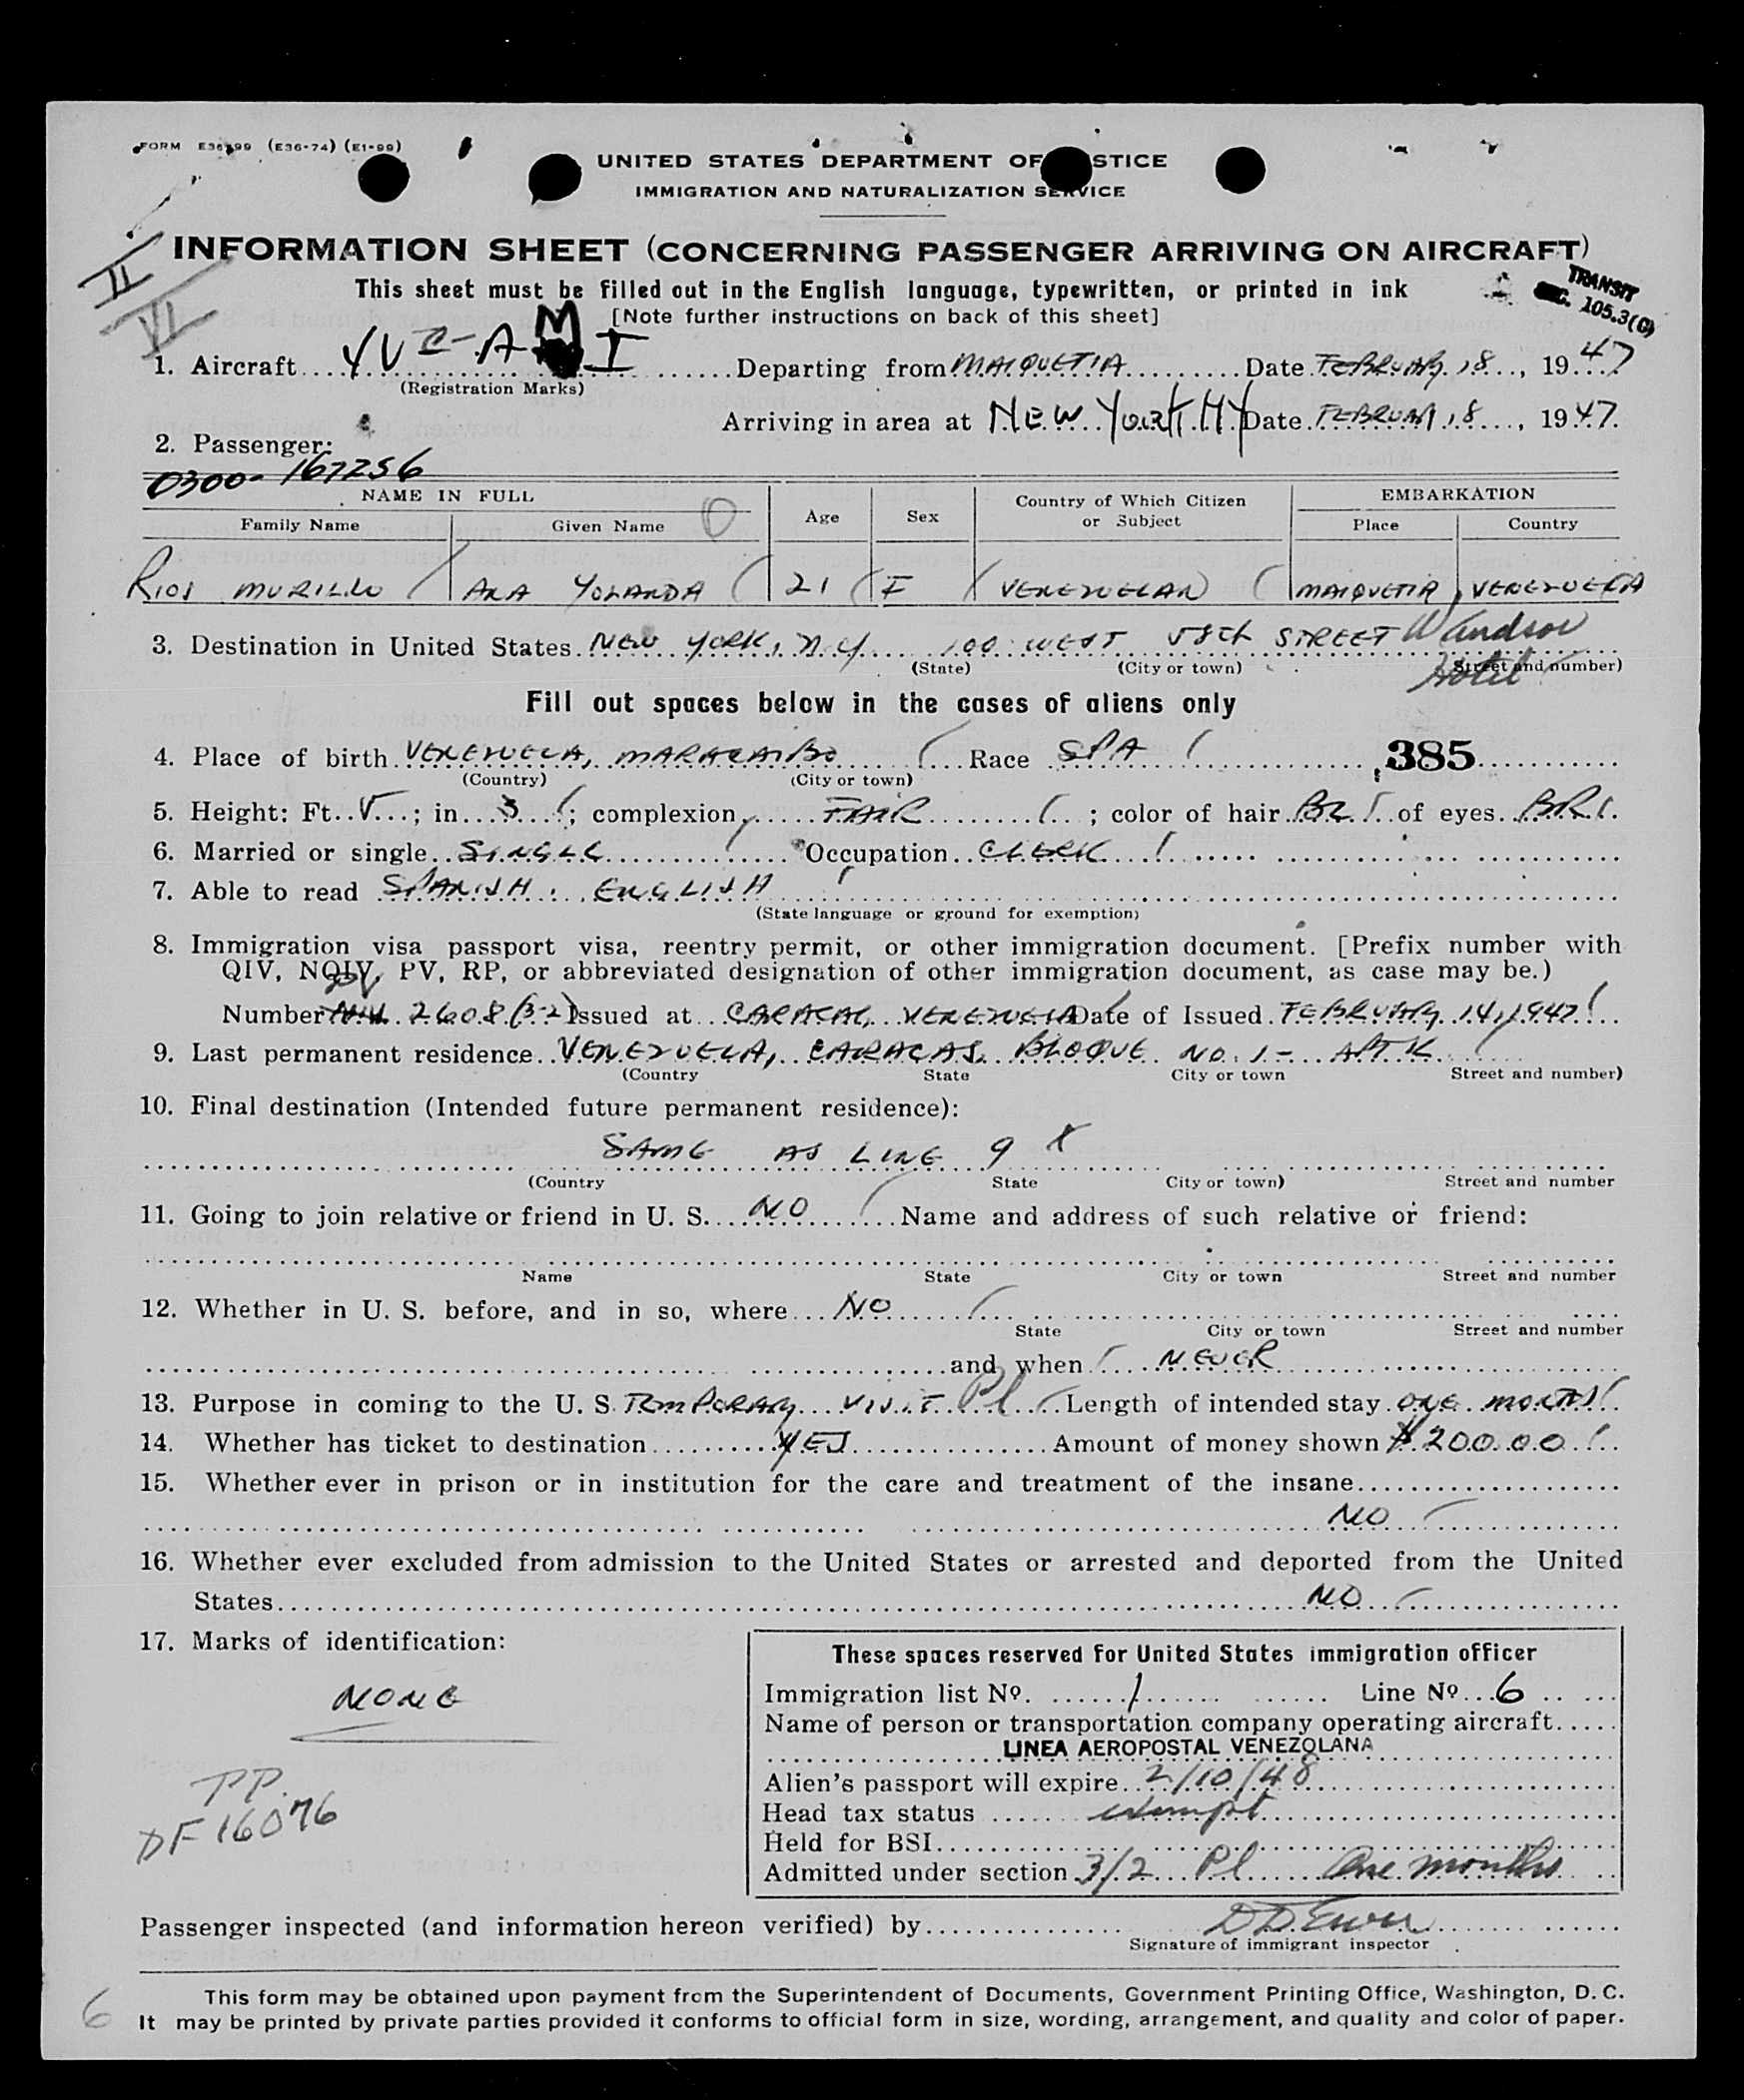 FORM E36-99 (E36-74) (E1-99)
UNITED STATES DEPARTMENT OF STICE
IMMIGRATION AND NATURALIZATION SERVICE
INFORMATION SHEET (CONCERNING PASSENGER ARRIVING ON AIRCRAFT)
II
VI
This sheet must be filled out in the English language, typewritten, or printed in ink
TRANSIT
[Note further instructions on back of this sheet]
SEC. 105.3(G)
1. Aircraft YVC-AMI Departing from MAIQUETIA Date FEBRUARY 18, 1947
(Registration Marks)
Arriving in area at NEW YORK NY Date FEBRUARY 18, 1947.
2. Passenger:
0300-167256
NAME IN FULL Age Sex Country of Which Citizen or Subject EMBARKATION
Family Name Given Name Place Country
RIOS MURILLO ANA YOLANDA 21 F VENEZUELAN MAIQUETIA VENEZUELA
3. Destination in United States NEW YORK, N.Y. 100 WEST 58th STREET Windsor Hotel
(State) (City or town) Street and number)
Fill out spaces below in the cases of aliens only
4. Place of birth VENEZUELA, MARACAIBO Race SPA 385
(Country) (City or town)
5. Height: Ft. 5; in. 3; complexion FAIR; color of hair BR of eyes BR.
6. Married or single SINGLE Occupation CLERK
7. Able to read SPANISH. ENGLISH
(State language or ground for exemption)
8. Immigration visa passport visa, reentry permit, or other immigration document. [Prefix number with
QIV, NQIV, PV, RP, or abbreviated designation of other immigration document, as case may be.)
PV
Number 2608 (3-2) Issued at CARACAS, VENEZUELA Date of Issued FEBRUARY 14, 1947
9. Last permanent residence VENEZUELA, CARACAS, BLOQUE NO. 1- APT K
(Country State City or town Street and number)
10. Final destination (Intended future permanent residence):
SAME AS LINE 9 X
(Country State City or town) Street and number
11. Going to join relative or friend in U. S. NO Name and address of such relative or friend:
Name State City or town Street and number
12. Whether in U. S. before, and in so, where NO
State City or town Street and number
and when NEVER
13. Purpose in coming to the U. S. TEMPORARY VISIT Pl Length of intended stay ONE MONTHS
14. Whether has ticket to destination YES Amount of money shown $200.00
15. Whether ever in prison or in institution for the care and treatment of the insane
NO
16. Whether ever excluded from admission to the United States or arrested and deported from the United
States NO
17. Marks of identification:
NONE
PP.
DF 16076
These spaces reserved for United States immigration officer
Immigration list No. 1 Line No. 6
Name of person or transportation company operating aircraft
LINEA AEROPOSTAL VENEZOLANA
Alien's passport will expire 2/10/48
Head tax status exempt
Held for BSI
Admitted under section 3/2 Pl One months
Passenger inspected (and information hereon verified) by
Signature of immigrant inspector
This form may be obtained upon payment from the Superintendent of Documents, Government Printing Office, Washington, D. C.
6
It may be printed by private parties provided it conforms to official form in size, wording, arrangement, and quality and color of paper.